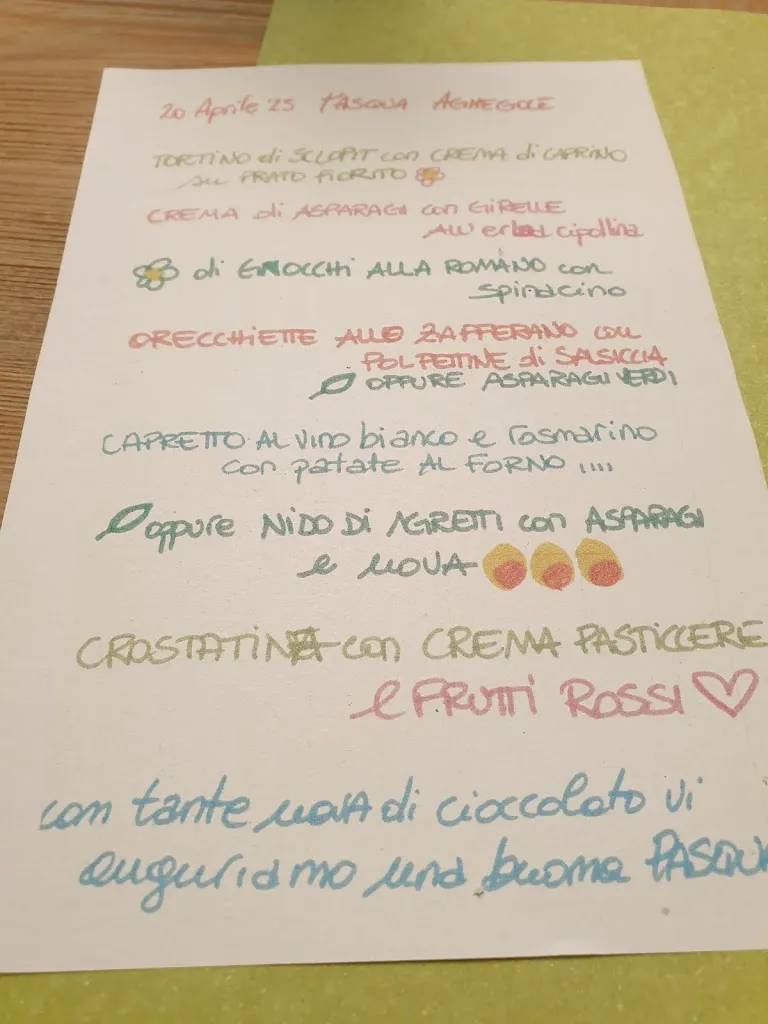 20 Aprile '25 PASQUA AGHEGOLE
TORTINO di SCLOPIT con CREMA di CAPRINO
su PRATO FIORITO
CREMA di ASPARAGI con GIRELLE
ALL'erba cipollina
di GNOCCHI ALLA ROMANO con
spinacino
ORECCHIETTE ALLO ZAFFERANO con
POLPETTINE di SALSICCIA
OPPURE ASPARAGI VERDI
CAPRETTO AL vino bianco e rosmarino
con patate AL FORNO ....
oppure NIDO DI AGRETTI con ASPARAGI
e UOVA
CROSTATINA con CREMA PASTICCERE
e FRUTTI ROSSI
con tante uova di cioccolato vi
auguriamo una buona PASQUA